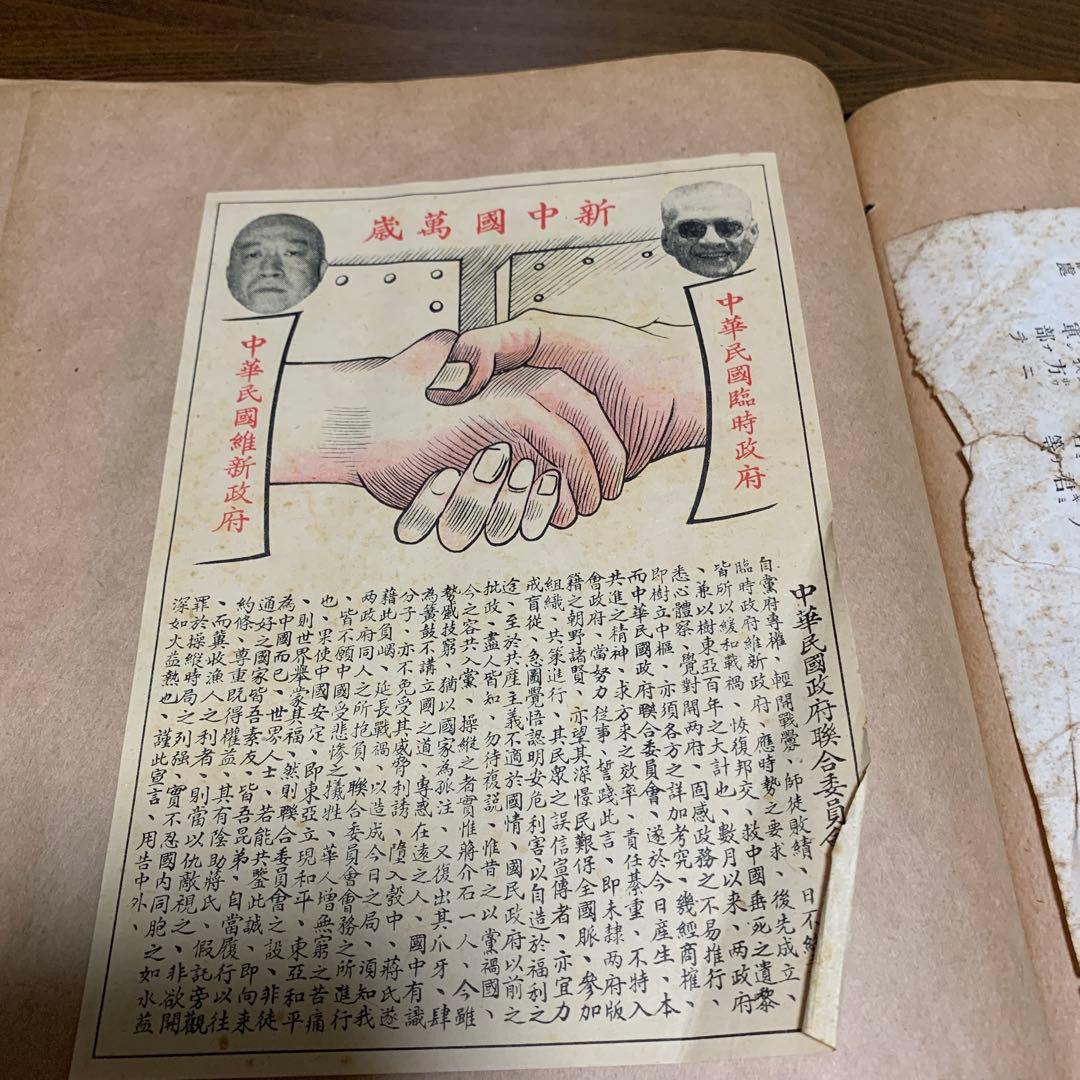 新中國萬歲
中華民國臨時政府
中華民國維新政府
中華民國政府聯合委員
自黨府專權、輕開戰釁、師徒敗績、日不
臨時政府維新政府、應時勢之要求、後先成立、
皆所以緩和戰禍、恢復邦交、救中國垂死之遺黎
、兼以樹東亞百年之大計也、數月以來、两政府
悉心體察、覺對開两府、固感政務之不易推行、
即樹立中樞、亦須各方之詳加考究、幾經商榷、
而中華民國政府聯合委員會、遂於今日産生、本
共進之精神、求方來之效率、責任綦重、不特入
會政府、當努力從事、誓踐此言、即未隸两府版
籍之朝野諸賢、亦望其深憬民艱保全國脈、參加
組織、共策進行、其民衆之誤信宣傳者、亦宜力
戒盲從、急圖覺悟認明安危利害、以自造於福利之
途、至於共産主義不適於國情、國民政府以前之
批政、盡人皆知、勿待複説、惟昔之以黨禍國、
今之容共入黨、操縱之者實惟蔣介石一人、今雖
勢蹙技窮、猶以國家為孤注、又復出其爪牙、肆
為簧鼓不講立國之道、專惑在遠之人、國中有識
分子、亦不免受其威脅利誘、墮入彀中、蔣氏遂
藉此負嵎、延長戰禍、以造成今日之局、須知我
两政府同人之所抱負、聯合委員會會務之所進行
、皆不願中國受悲慘之犠牲、華人增無窮之苦痛
也、果使中國安定、即東亞立現和平、東亞和平
、則世界舉蒙其福、然則聯合委員會之設、非徒
為中國而已、世界人士、若能共鑒此誠、即向來
通好之國家皆吾素友、皆吾昆弟、自當履行以往
約條、尊重既得權益、其有陰助蔣氏、假託旁觀
、而冀收漁人之利者、則當以仇敵視之、非欲開
罪於操縱時局之列强、實不忍國內同胞之如水益
深如火益熱也、謹此宣言、用告中外、